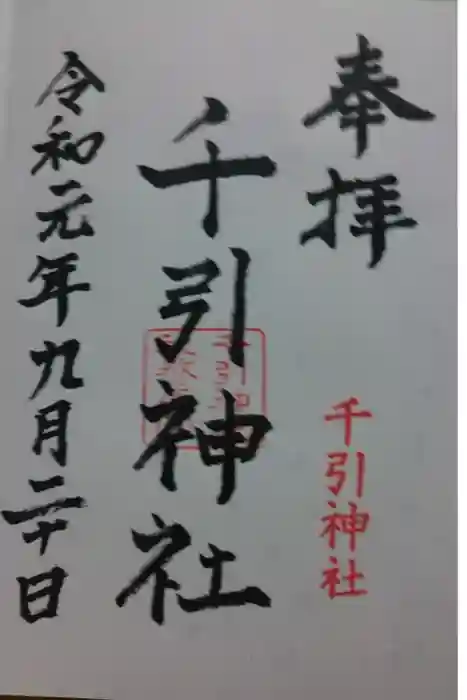 奉拝
千引神社
千引神社
令和元年九月二十日